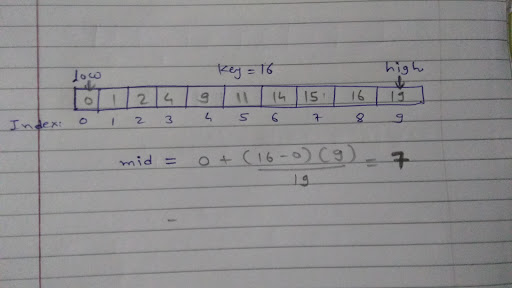 low Key = 16 high
0 1 2 4 9 11 14 15 16 19
Index: 0 1 2 3 4 5 6 7 8 9
mid = 0 + (16-0)(9) = 7
19